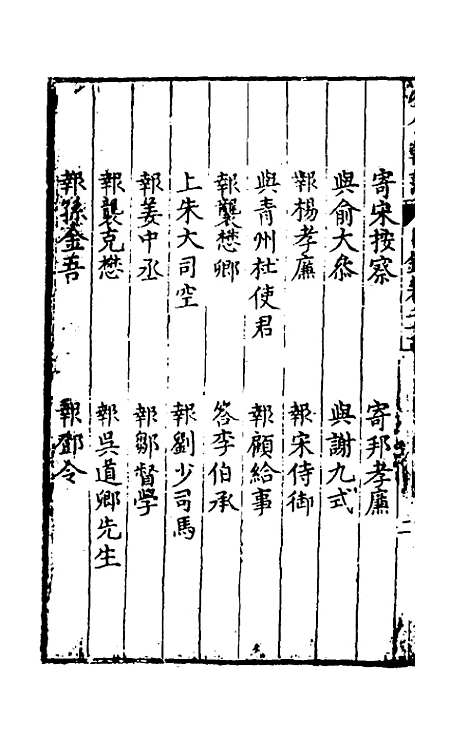 寄宋按察 寄邦孝廉
與俞大參 與謝九式
報楊孝廉 報宋侍御
與青州杜使君 報顧給事
報龔懋卿 答李伯承
上朱大司空 報劉少司馬
報姜中丞 報鄒督學
報龔克懋 報吳道卿先生
報孫金吾 報鄧令